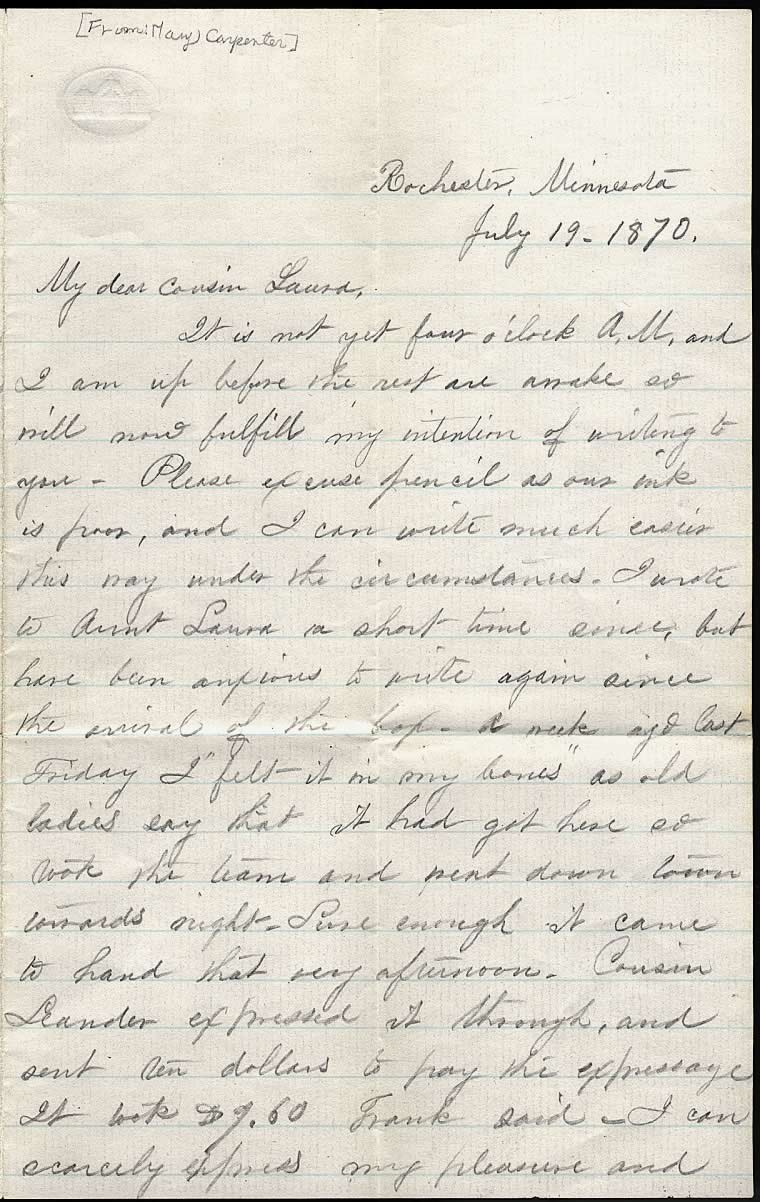 [From: Mary Carpenter]
Rochester, Minnesota
July 19 - 1870.
My dear cousin Laura,
It is not yet four o'clock A.M. and
I am up before the rest are awake so
will now fulfill my intention of writing to
you - Please excuse pencil as our ink
is poor, and I can write much easier
this way under the circumstances - I wrote
to Aunt Laura a short time since, but
have been anxious to write again since
the arrival of the box - A week ago last
Friday I "felt it in my bones" as old
ladies say that it had got here so
took the team and went down town
towards night - Sure enough it came
to hand that very afternoon - Cousin
Leander expressed it through, and
sent ten dollars to pay the expressage
It took $9.60 Frank said - I can
scarcely express my pleasure and